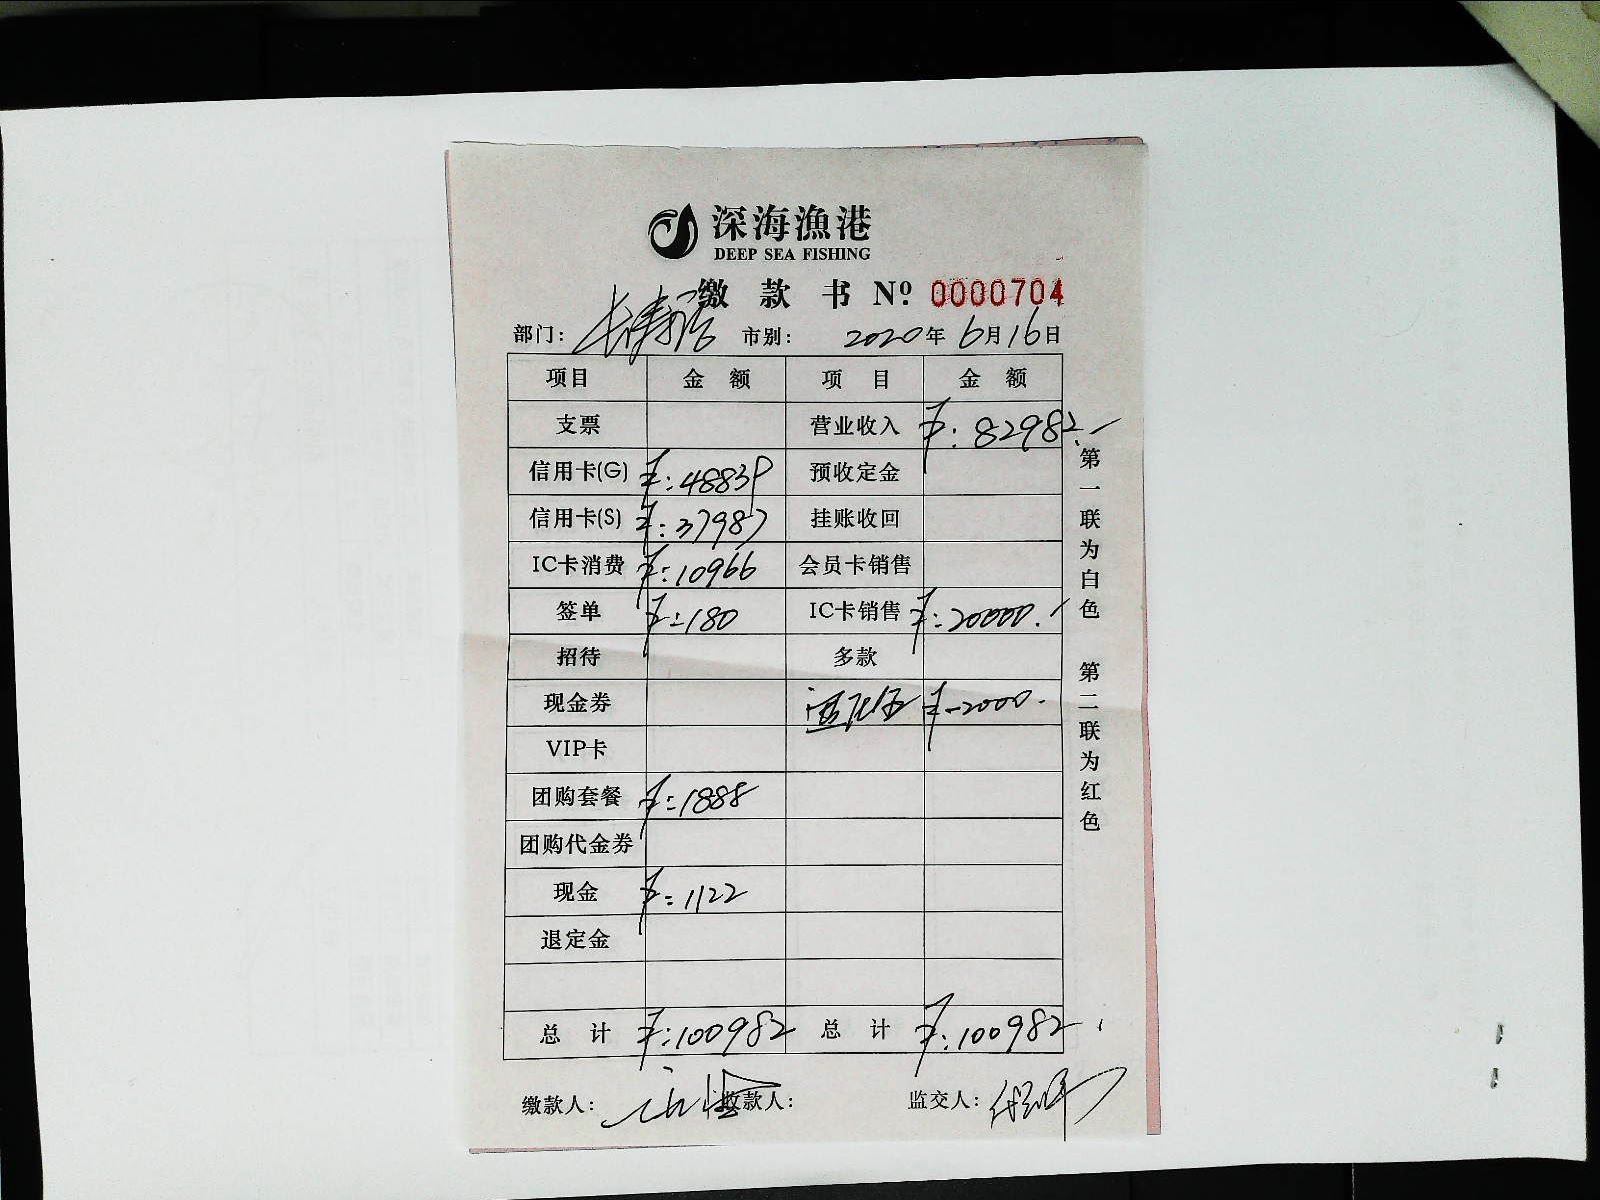 深海漁港
DEEP SEA FISHING
缴款书 Nº 0000704
部门： 市别： 2020年6月16日
项目 金额 项目 金额
支票 营业收入 ¥:82982.-
信用卡(G) ¥:48839 预收定金
信用卡(S) ¥:37987 挂账收回
IC卡消费 ¥:10966 会员卡销售
签单 ¥:180 IC卡销售 ¥:20000.-
招待 多款
现金券 ¥-2000.
VIP卡
团购套餐 ¥:1888
团购代金券
现金 ¥:1122
退定金
总计 ¥:100982 总计 ¥:100982.
缴款人： 收款人： 监交人：
第一联为白色 第二联为红色